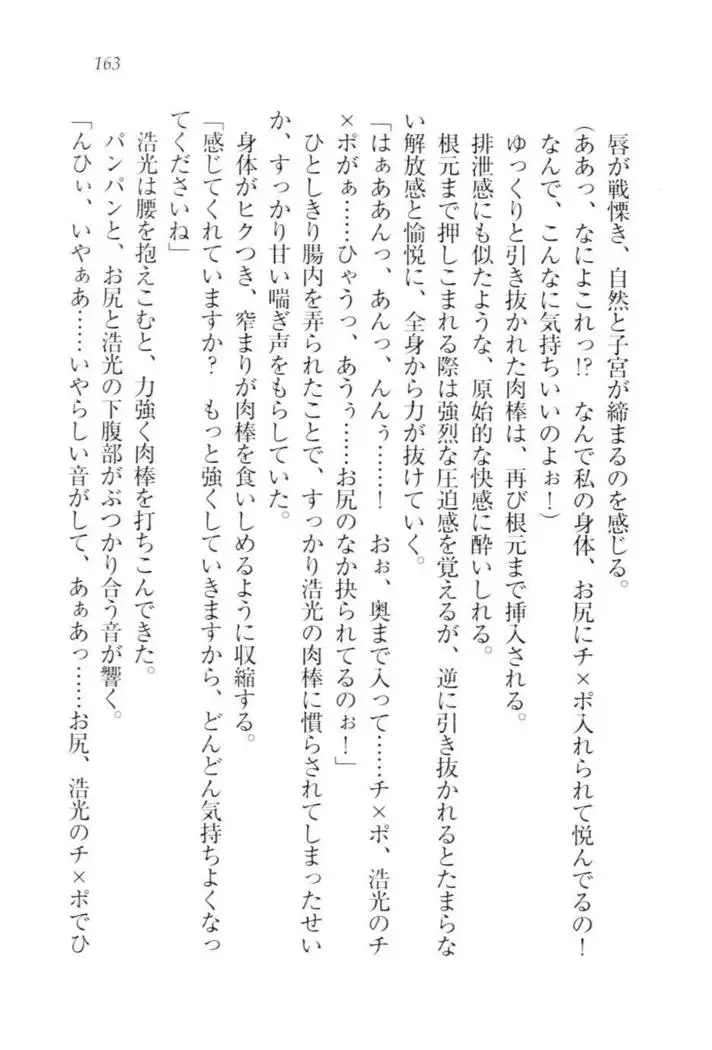 163
唇が戦慄き、自然と子宮が締まるのを感じる。
（ああっ、なによこれっ!?　なんで私の身体、お尻にチ×ポ入れられて悦んでるの！
なんで、こんなに気持ちいいのよぉ！）
ゆっくりと引き抜かれた肉棒は、再び根元まで挿入される。
排泄感にも似たような、原始的な快感に酔いしれる。
根元まで押しこまれる際は強烈な圧迫感を覚えるが、逆に引き抜かれるとたまらな
い解放感と愉悦に、全身から力が抜けていく。
「はぁああんっ、あんっ、んんぅ……！　おぉ、奥まで入って……チ×ポ、浩光のチ
×ポがぁ……ひゃうっ、あうぅ……お尻のなか抉られてるのぉ！」
ひとしきり腸内を弄られたことで、すっかり浩光の肉棒に慣らされてしまったせい
か、すっかり甘い喘ぎ声をもらしていた。
身体がヒクつき、窄まりが肉棒を食いしめるように収縮する。
「感じてくれていますか？　もっと強くしていきますから、どんどん気持ちよくなっ
てくださいね」
浩光は腰を抱えこむと、力強く肉棒を打ちこんできた。
パンパンと、お尻と浩光の下腹部がぶつかり合う音が響く。
「んひぃ、いやぁあ……いやらしい音がして、あぁあっ……お尻、浩光のチ×ポでひ